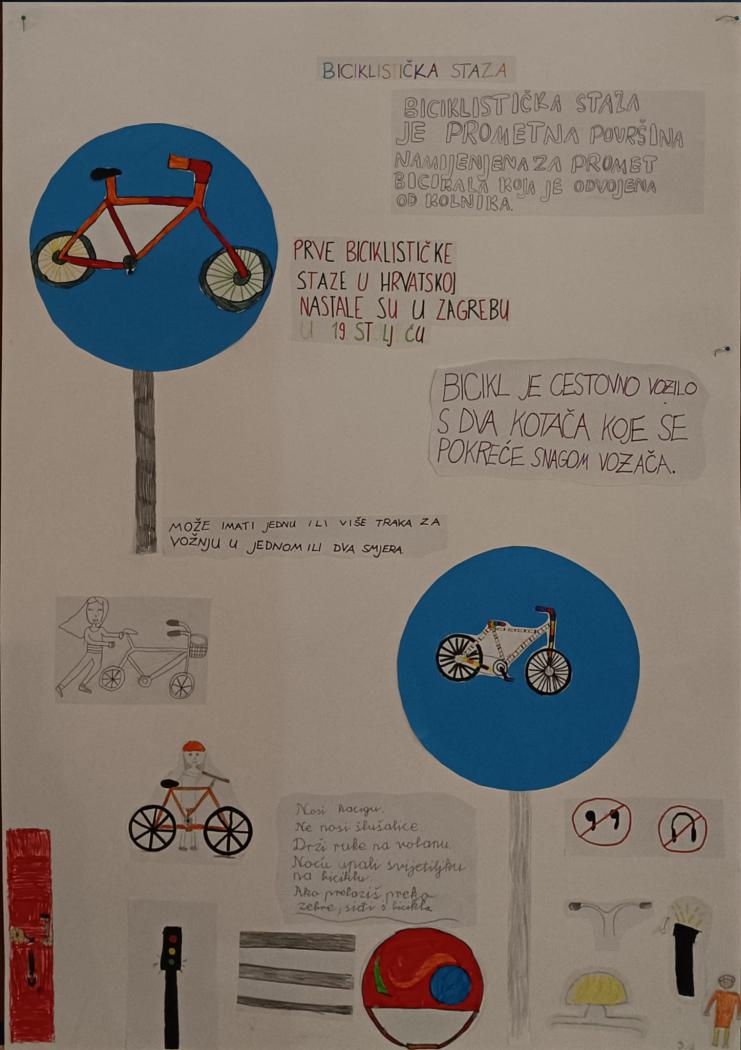 BICIKLISTIČKA STAZA
BICIKLISTIČKA STAZA
JE PROMETNA POVRŠINA
NAMIJENJENA ZA PROMET
BICIKALA KOJA JE ODVOJENA
OD KOLNIKA.
PRVE BICIKLISTIČKE
STAZE U HRVATSKOJ
NASTALE SU U ZAGREBU
U 19 ST LJ ĆU
BICIKL JE CESTOVNO VOZILO
S DVA KOTAČA KOJE SE
POKREĆE SNAGOM VOZAČA.
MOŽE IMATI JEDNU ILI VIŠE TRAKA ZA
VOŽNJU U JEDNOM ILI DVA SMJERA.
Nosi kacigu.
Ne nosi slušalice.
Drži ruke na volanu.
Noću upali svijetiljku
na biciklu.
Ako prelaziš preko
zebre, siđi s bicikla